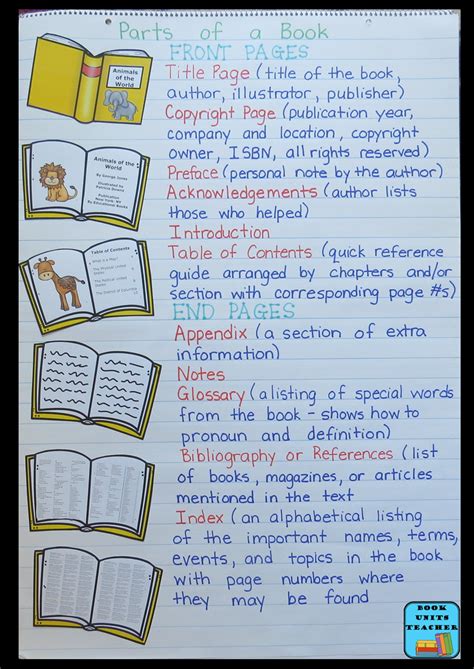 Parts of a Book
FRONT PAGES
Title Page (title of the book,
author, illustrator, publisher)
Copyright Page (publication year,
company and location, copyright
owner, ISBN, all rights reserved)
Preface (personal note by the author)
Acknowledgements (author lists
those who helped)
Introduction
Table of Contents (quick reference
guide arranged by chapters and/or
section with corresponding page #s)
END PAGES
Appendix (a section of extra
information)
Notes
Glossary (a listing of special words
from the book - shows how to
pronoun and definition)
Bibliography or References (list
of books, magazines, or articles
mentioned in the text
Index (an alphabetical listing
of the important names, terms,
events, and topics in the book
with page numbers where
they may be found
Animals
of the
World
Animals of the
World
By George Jones
Illustrated by
Publication
New York, NY
By Educational Books
Table of Contents
What is a Map?
BOOK
UNITS
TEACHER